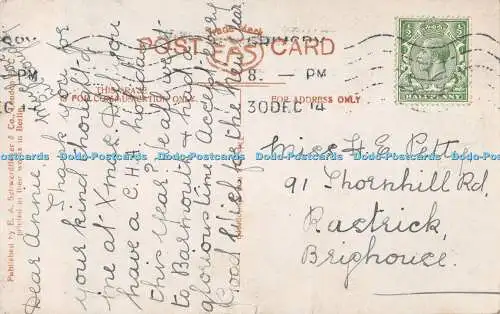 Trade Mark
POST CARD
THIS SPACE
FOR COMMUNICATION ONLY.
FOR ADDRESS ONLY
PM
8. — PM
30 DEC 14
HALFPENNY
Published by E. A. Schwerdtfeger & Co., London, E.C.
Printed at their works in Berlin
Dear Annie,
Thank you for
your kind thought of
me at Xmas. Do you
have a C.H.A. holiday
this year? We all went
to Barmouth & had a
glorious time. Accept every
Good Wish for the New Year
Miss H. E. Petty
91 Thornhill Rd,
Rastrick,
Brighouse.
Dodo-Postcards Dodo-Postcards Dodo-Postcards Dodo-Postcards Dodo-Postcards